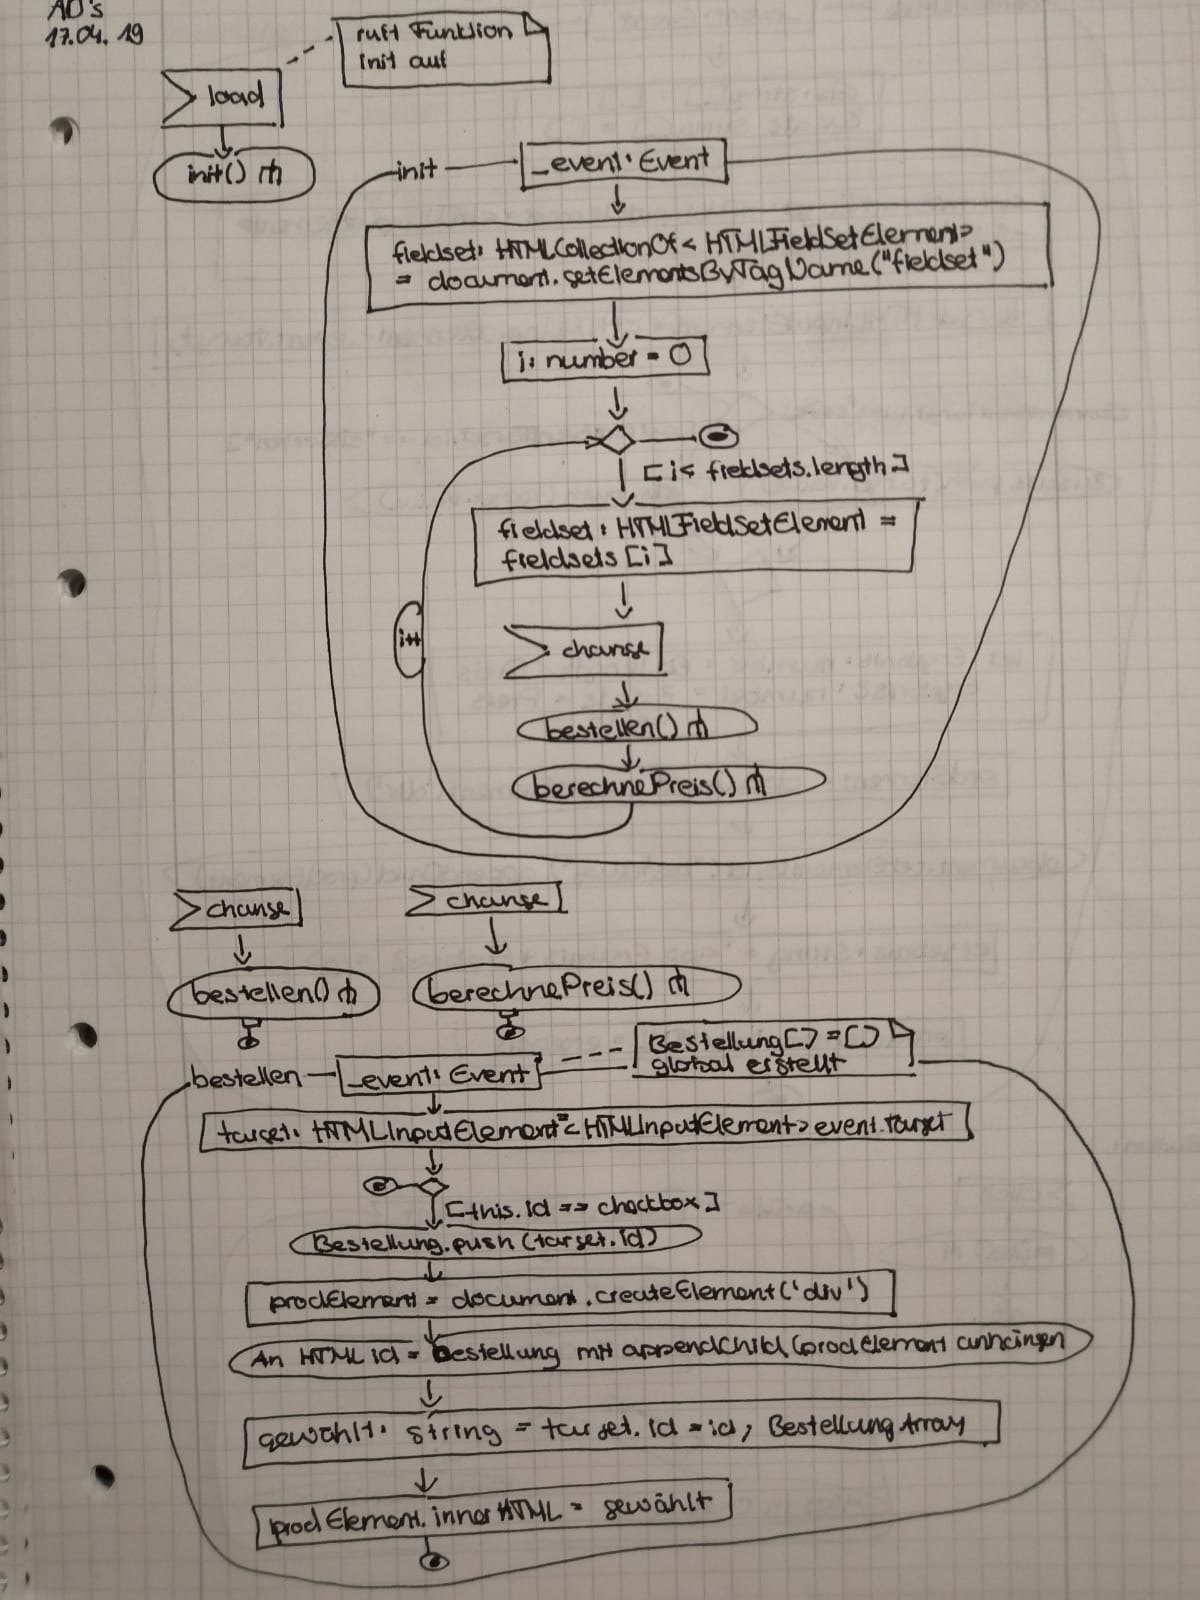 AD's
17.04.19
ruft Funktion
init auf
load
init()
init
_event: Event
fieldset: HTMLCollectionOf< HTMLFieldSetElement>
= document.getElementsByTagName("fieldset")
i: number = 0
[i< fieldsets.length]
fieldset: HTMLFieldSetElement =
fieldsets [i]
i++
change
bestellen()
berechnePreis()
change
change
bestellen()
berechnePreis()
Bestellung[] = []
global erstellt
bestellen
_event: Event
target: HTMLInputElement = <HTMLInputElement> event.target
[this.id == checkbox]
Bestellung.push(target.id)
prodElement = document.createElement('div')
An HTML id = bestellung mit appendChild (prodElement anhängen
gewählt: string = target.id = id, Bestellung Array
prodElement.innerHTML = gewählt